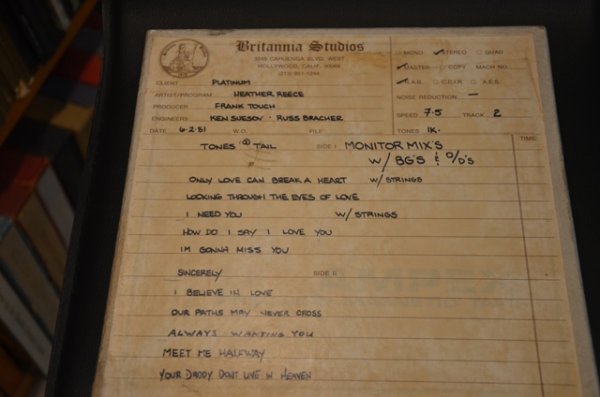 Britannia Studios
3249 CAHUENGA BLVD. WEST
HOLLYWOOD, CALIF. 90068
(213) 851-1244
MONO STEREO QUAD
MASTER COPY MACH NO.
N.A.B. C.C.I.R. A.E.S.
NOISE REDUCTION —
SPEED 7.5 TRACK 2
CLIENT PLATINUM
ARTIST/PROGRAM HEATHER REECE
PRODUCER FRANK TOUCH
ENGINEERS KEN SUESOV · RUSS BRACHER
DATE 6-2-81 W.O. FILE TONES 1K.
TIME
TONES @ TAIL SIDE I MONITOR MIX'S
W/ BG'S & O/D'S
ONLY LOVE CAN BREAK A HEART W/ STRINGS
LOOKING THROUGH THE EYES OF LOVE
I NEED YOU W/ STRINGS
HOW DO I SAY I LOVE YOU
IM GONNA MISS YOU
SINCERELY SIDE II
I BELIEVE IN LOVE
OUR PATHS MAY NEVER CROSS
ALWAYS WANTING YOU
MEET ME HALFWAY
YOUR DADDY DONT LIVE IN HEAVEN